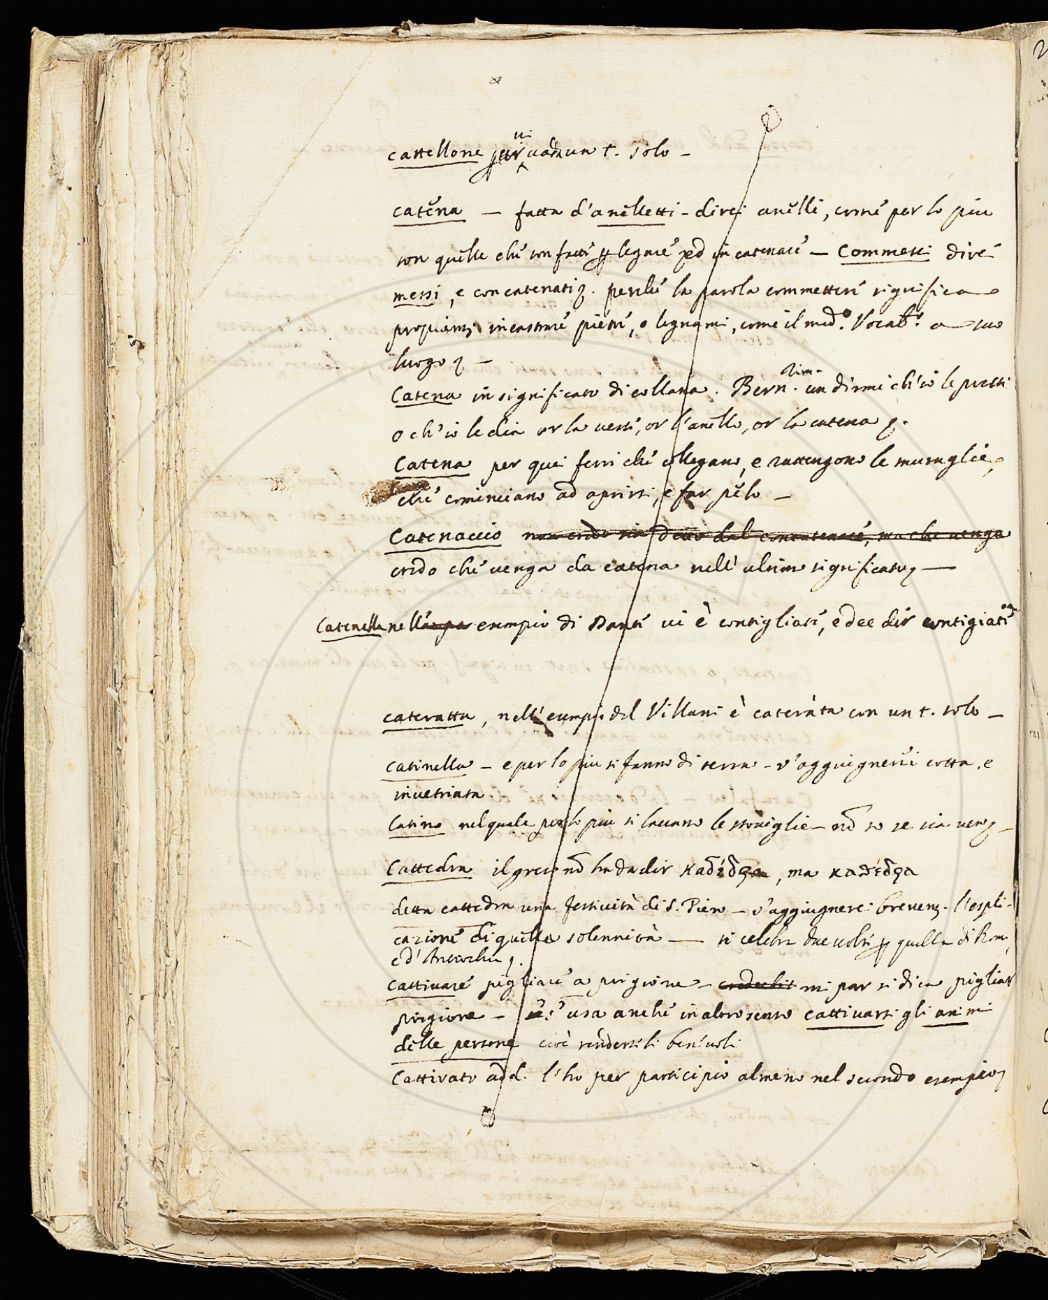 castellone vi vada un t. solo -
catena - fatta d'anelletti - direi anelli, come per lo piu
son quelle che son fatte per legare ed incatenare - Commessi direi
messi, e concatenati. perche la parola commettere significa
incastrare pietre, o legnami, come il med.º Vocab.º a suo
luogo -
Catena in significato di collana. Bern. rim. un dirmi ch'io le presti
o ch'io le dia or la veste, or l'anello, or la catena
Catena per quei ferri che collegano, e rattengono le muraglie,
che cominciano ad aprirsi, e far pelo -
Catenaccio non credo sia detto dal concatenare, ma che venga
credo che venga da catena nell'ultimo significato -
Catenella nell' esempio di Dante vi è contigliate, e dee dir contigiate
cateratta, nell'esempio del Villani è caterata con un t. solo -
catinella - e per lo piu si fanno di terra - v'aggiugnerei cotta, e
invetriata.
Catino nel quale per lo piu si lavano le stoviglie - nō so se sia vero -
Cattedra il greco nō ha da dir καδέδρα, ma καθέδρα
detta cattedra una festività di S. Piero - v'aggiugnerei brevem. l'espli-
cazione di quella solennità - si celebra due volte per quella di Rom,
e d'Antiochia.
Cattivare pigliare a prigione - mi par si dica pigliar
prigione - s'usa anche in altro senso cattivarsi gli animi
delle persone cioè renderseli benevoli
Cattivato add. l'ho per participio almeno nel secondo esempio